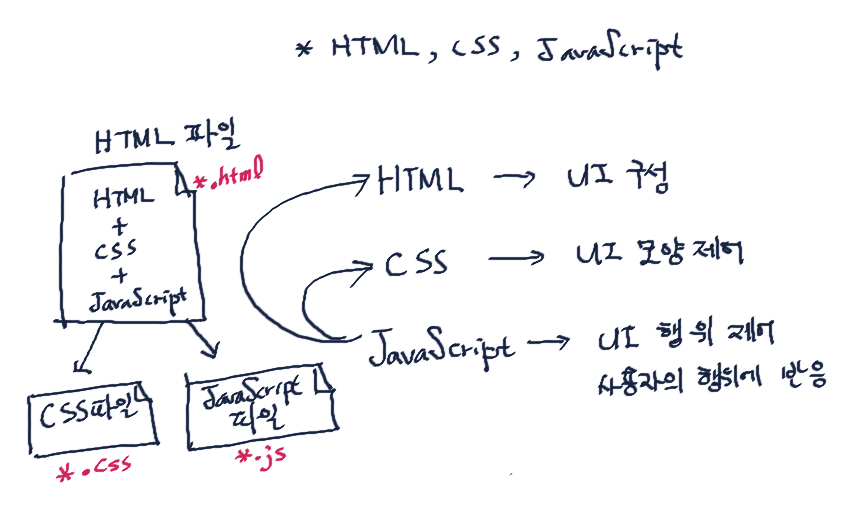 * HTML, CSS, JavaScript
HTML 파일
*.html
HTML
+
CSS
+
JavaScript
CSS파일
*.css
JavaScript
파일
*.js
HTML → UI 구성
CSS → UI 모양 제어
JavaScript → UI 행위 제어
사용자의 행위에 반응